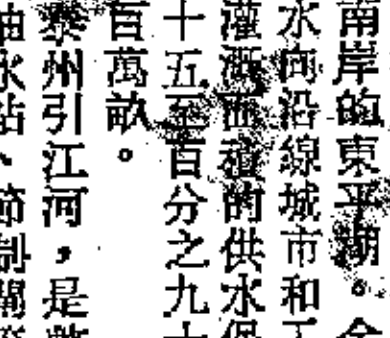 南岸的東平湖。全
水向沿線城市和工
灌溉面積的供水保
十五至百分之九十
百萬畝。
泰州引江河,是
抽水站、節制閘